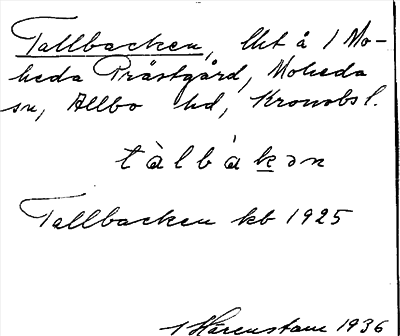 Tallbacken, lht å 1 Mo-
heda Prästgård, Moheda
sn, Allbo hd, Kronobsl.
tàlbàkən
Tallbacken kb 1925
Harenstam 1936